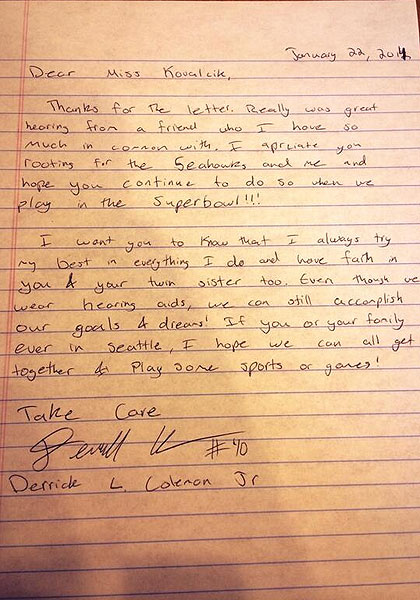 January 22, 2014
Dear Miss Kovalcik,
Thanks for the letter. Really was great
hearing from a friend who I have so
much in common with. I apriciate you
rooting for the Seahawks and me and
hope you continue to do so when we
play in the Superbowl!!!
I want you to know that I always try
my best in everything I do and have faith in
you & your twin sister too. Even though we
wear hearing aids, we can still accomplish
our goals & dreams! If you or your family
ever in Seattle, I hope we can all get
together & Play some sports or games!
Take Care
#40
Derrick L. Coleman Jr